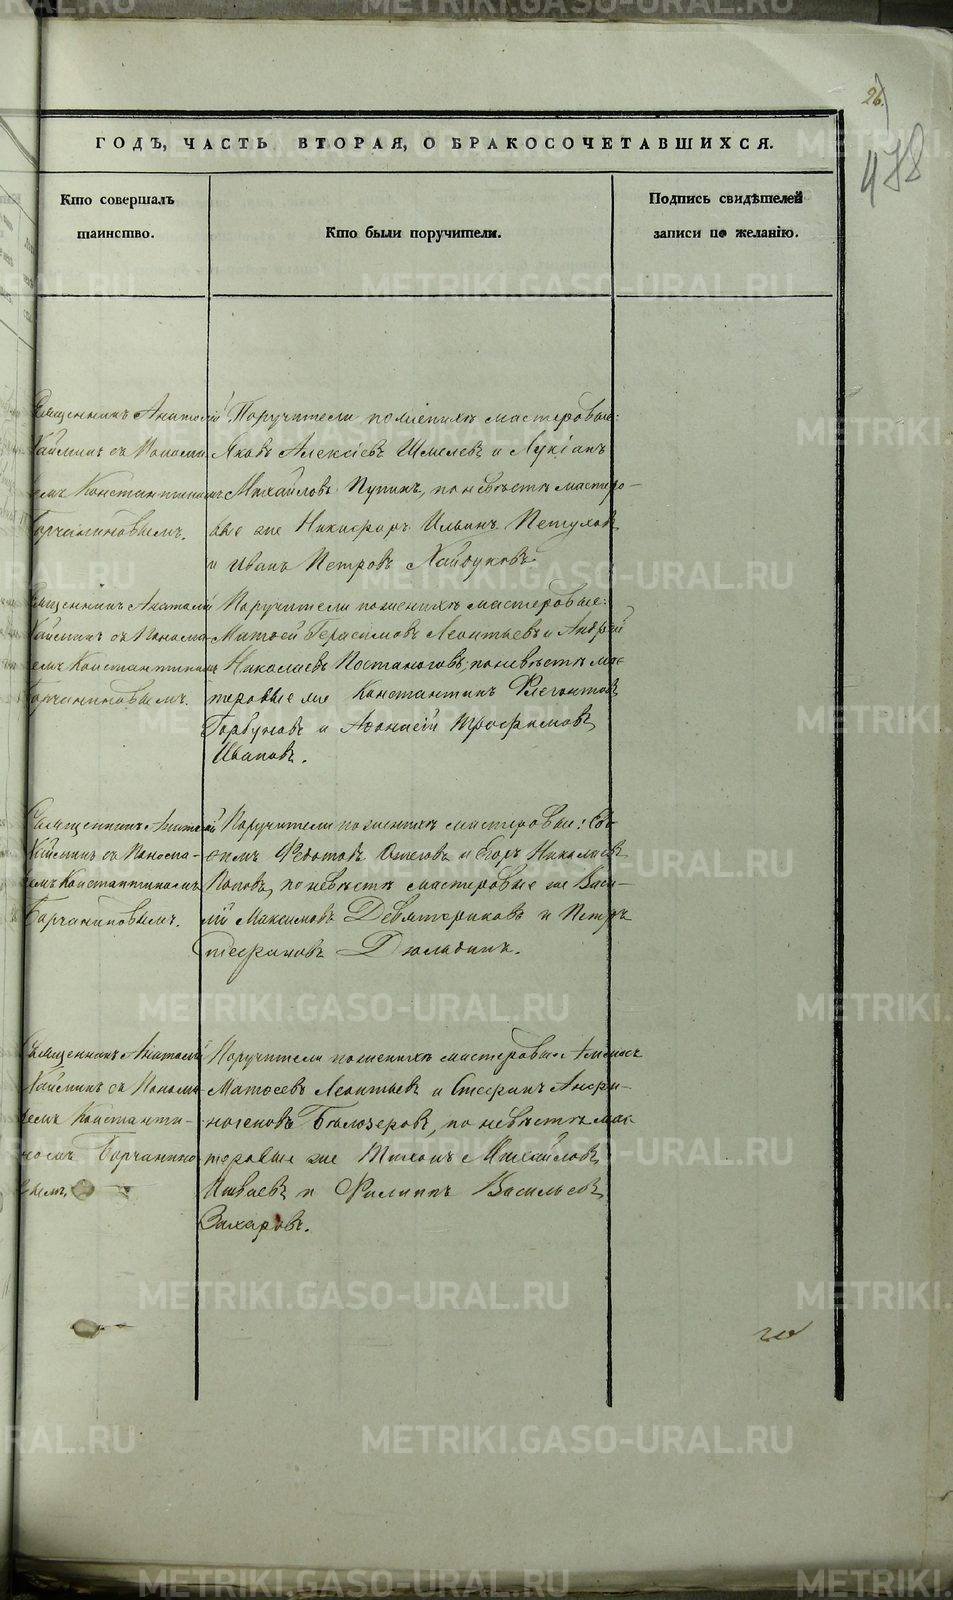 26.
478
ГОДЪ, ЧАСТЬ ВТОРАЯ, О БРАКОСОЧЕТАВШИХСЯ.
Кто совершалъ
таинство.
Кто были поручители.
Подпись свидѣтелей
записи по желанію.
Священникъ Анатолій
съ Понома
емъ Константиномъ
Борчаниновымъ.
Поручители по женихѣ мастеровые:
Яковъ Алексіевъ Шмелевъ и Лукіанъ
Михайловъ Пупинъ, по невѣстѣ мастеро-
вые же Никифоръ Ильинъ Петуховъ
и Иванъ Петровъ Хайдуковъ
Священникъ Анатолій
съ Понома-
емъ Константиномъ
Борчаниновымъ.
Поручители по женихѣ мастеровые:
Матѳей Герасимовъ Леонтьевъ и Андрей
Николаевъ Постаноговъ, по невѣстѣ мас-
теровые же Константинъ Флегонтовъ
Горбуновъ и Аѳанасій Трофимовъ
Ивановъ.
Священникъ Анатолій
съ Понома-
емъ Константиномъ
Борчаниновымъ.
Поручители по женихѣ мастеровые:
Федотовъ и Егоръ Николаевъ
Поповъ, по невѣстѣ мастеровые же Васи-
лій Максимовъ Девятериковъ и Петръ
Стефановъ Дюлядинъ.
Священникъ Анатолій
съ Понома
емъ Константи-
номъ Борчанино
вымъ.
Поручители по женихѣ мастеровые
Матѳеевъ Леонтьевъ и Стефанъ Анфи-
ногеновъ Бѣлозеровъ, по невѣстѣ мас-
теровые же Тихонъ Михайловъ
и Филиппъ Васильевъ
Захаровъ.
METRIKI.GASO-URAL.RU